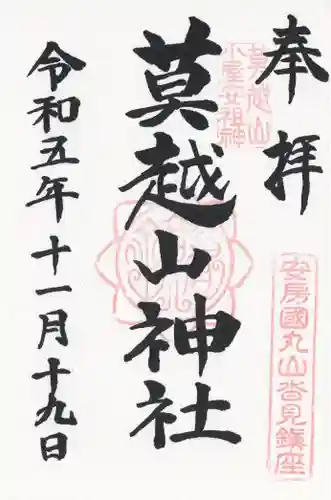 奉拝
莫越山
小屋安祖神
莫越山神社
安房國丸山沓見鎮座
令和五年十一月十九日